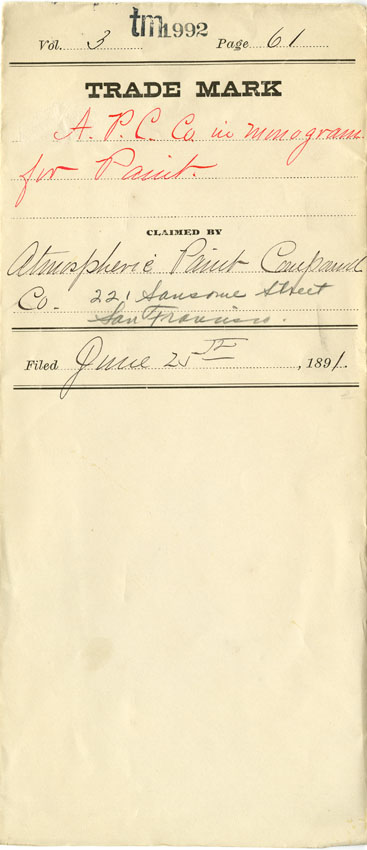 tm1992
Vol. 3 Page 61
TRADE MARK
A. P. C. Co. in monogram
for Paint.
CLAIMED BY
Atmospheric Paint Compound
Co. 221 Sansome Street
San Francisco.
Filed June 25th, 1891.